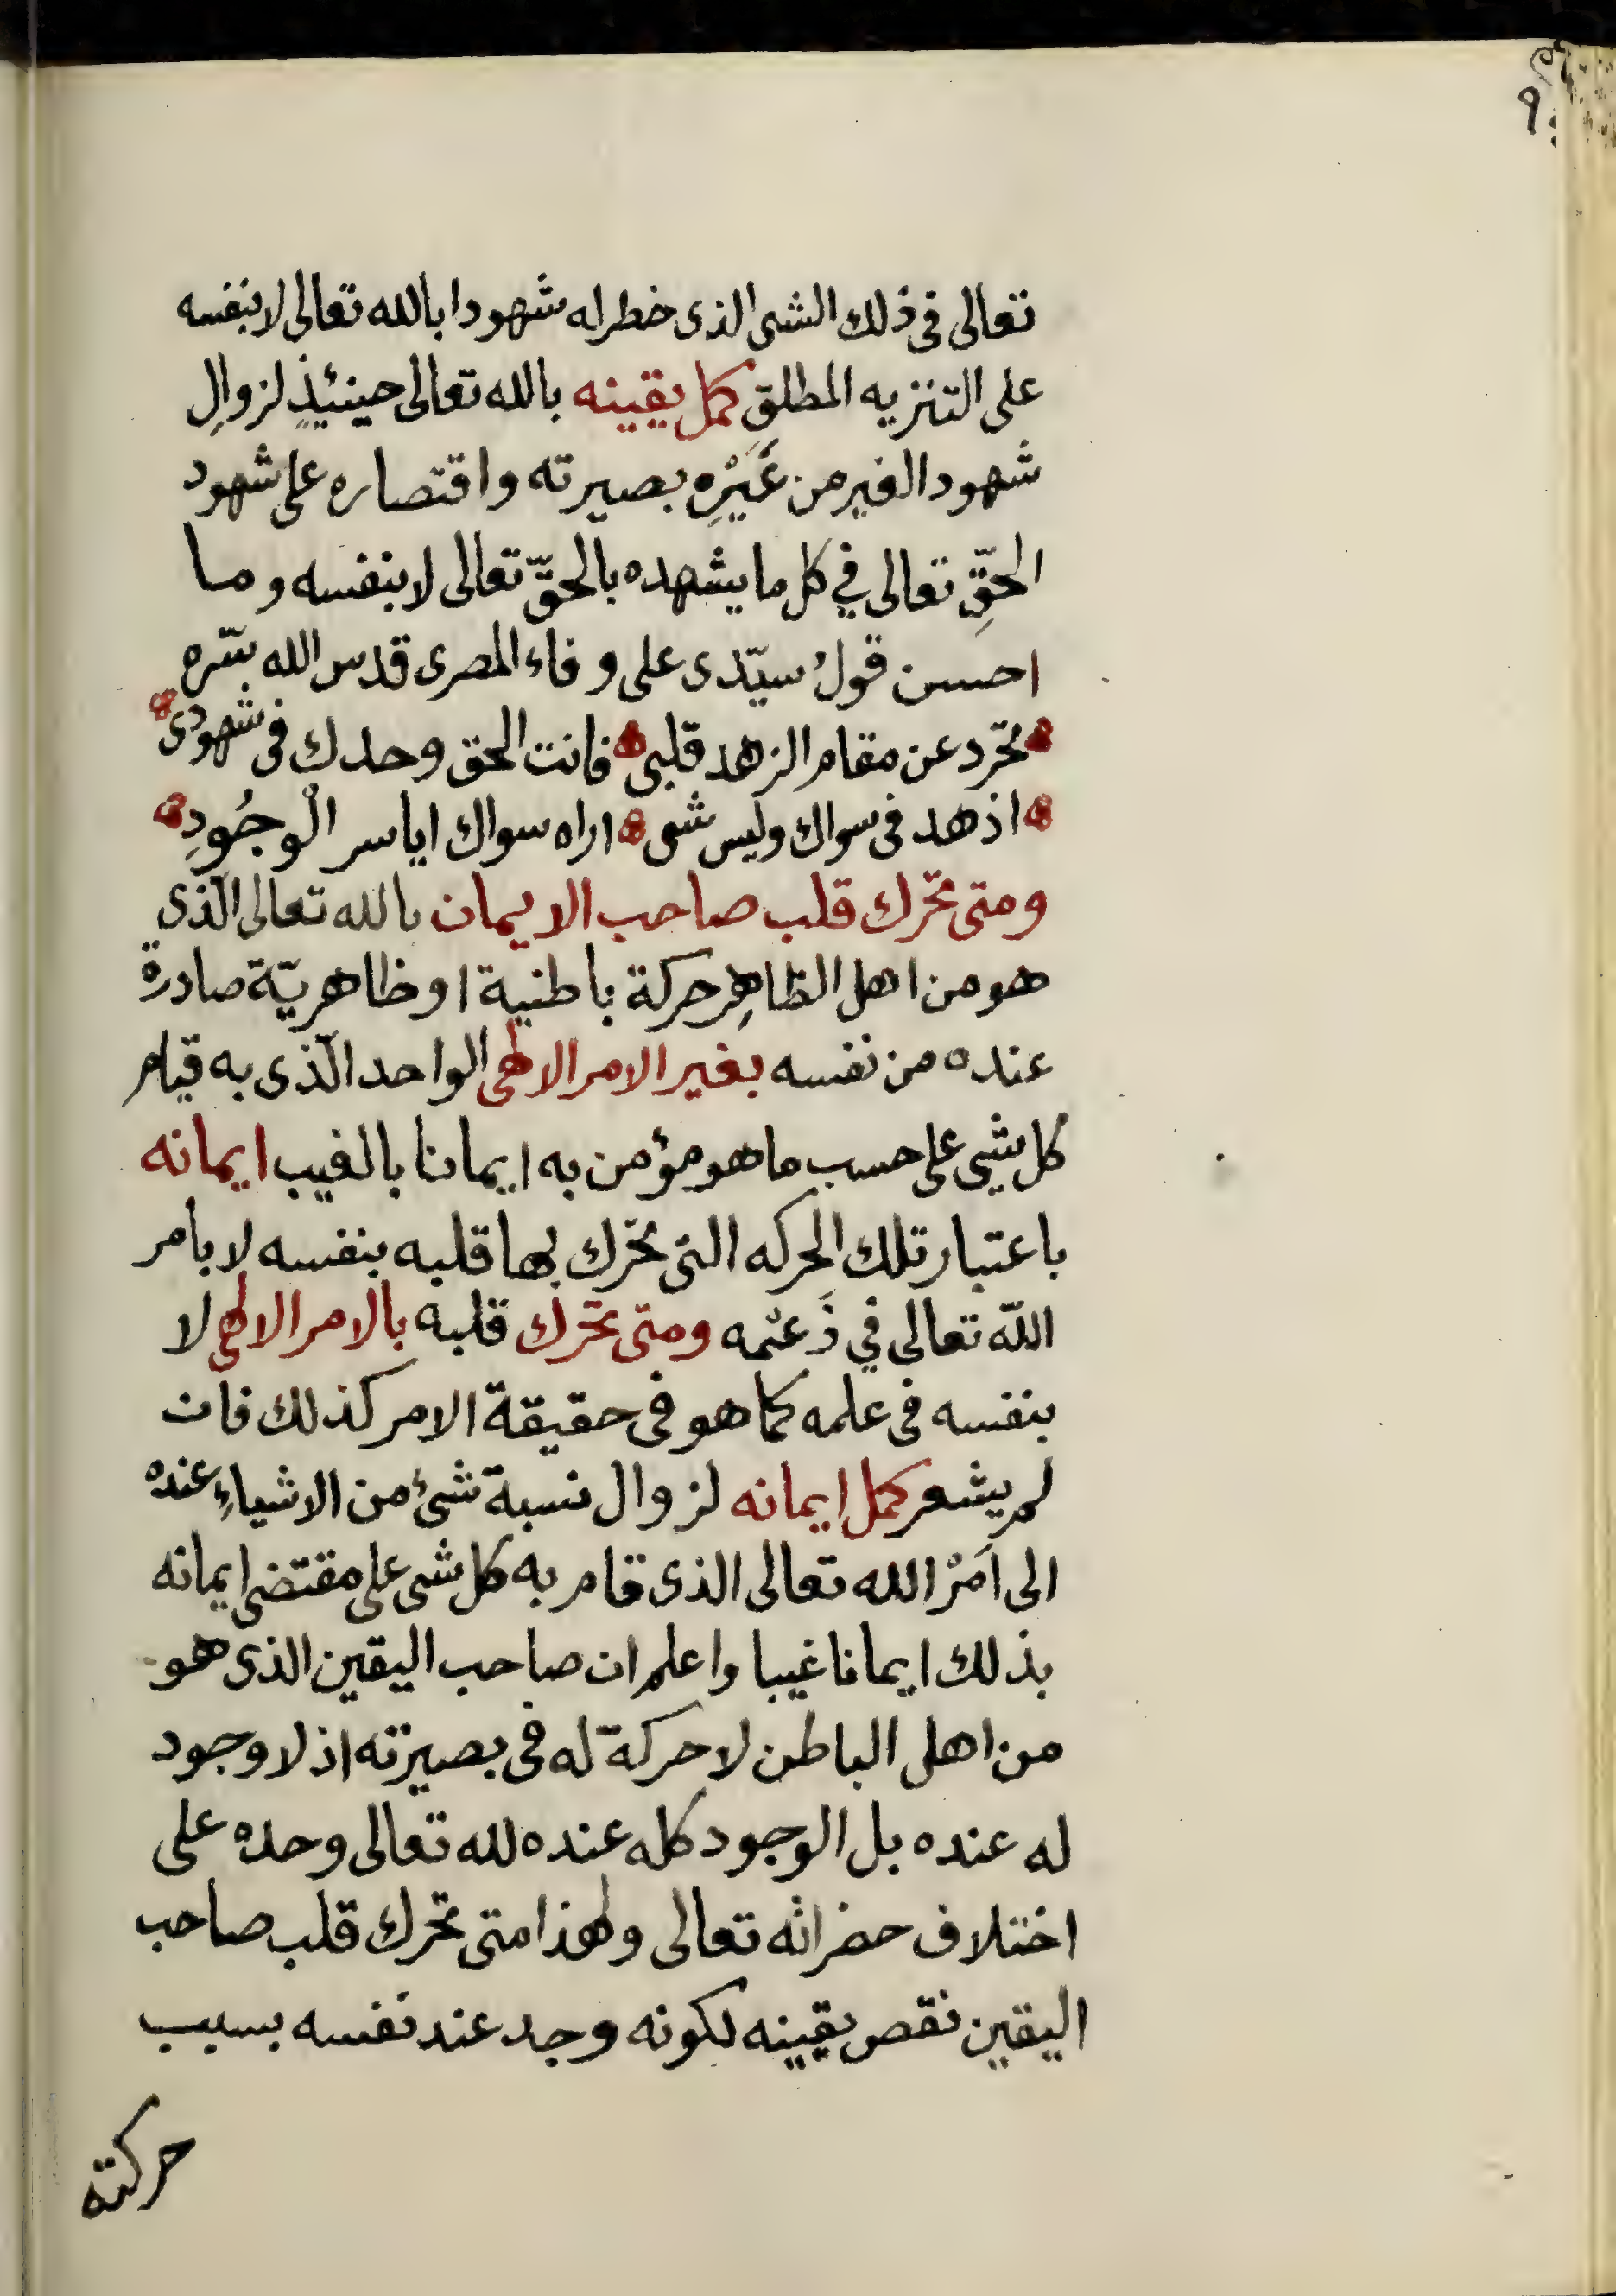 تعالى فى ذلك الشى الذى خطر له شهودا بالله تعالى لا بنفسه
على التنزيه المطلقِ كمل يقينه بالله تعالى حينئيذٍ لزوالِ
شهود الغير من عَيْرِه بصيرته واقتصاره على شهود
الحقِّ تعالى في كل ما يشهده بالحقّ تعالى لا بنفسه وما
احسن قولُ سيّدى على وفاء المصرى قدس الله سّره
تجّرد عن مقام الزهد قلبى فانت الحق وحدك فى شهودى
اذهد فى سواك وليس شى اراه سواك اياسر الْوجُودِ
ومتى تحّرك قلب صاحب الايمان بالله تعالى الّذى
هو من اهل الظاهِر حركة باطنية او ظاهريّة صادرة
عنده من نفسه بغير الامر الالهى الواحد الّذى به قيام
كل شى على حسب ما هو مؤمن به ايمانا بالغيب ايمانه
باعتبار تلك الحركه التى تحّرك بها قلبه بنفسه لا بأمر
اللّه تعالى في ذَعْمه ومتى تحّرك قلبه بالامر الالهى لا
بنفسه فى علمه كما هو فى حقيقة الامر كذلك فان
لم يشعر كمل ايمانه لزوال نسبة شئ من الاشياءِ عنده
الى اَمْر الله تعالى الذى قام به كل شى على مقتضى ايمانه
بذلك ايمانا غيبا واعلم ان صاحب اليقين الذى هو
من اهل الباطن لا حركة له فى بصيرته اذ لا وجود
له عنده بل الوجود كله عنده لله تعالى وحده على
اختلاف حضراته تعالى ولهذا متى تحرك قلب صاحب
اليقين نقص يقينه لكونه وجد عند نفسه بسبب
حركته